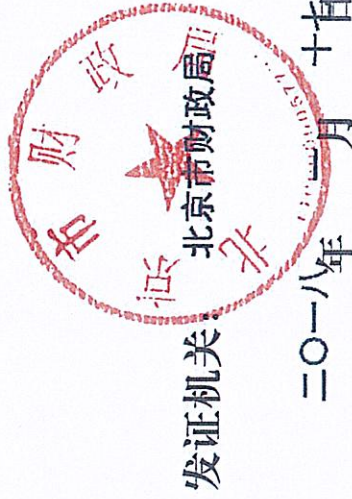 发证机关：北京市财政局
二〇一八年 月 十 日
北京市财政局